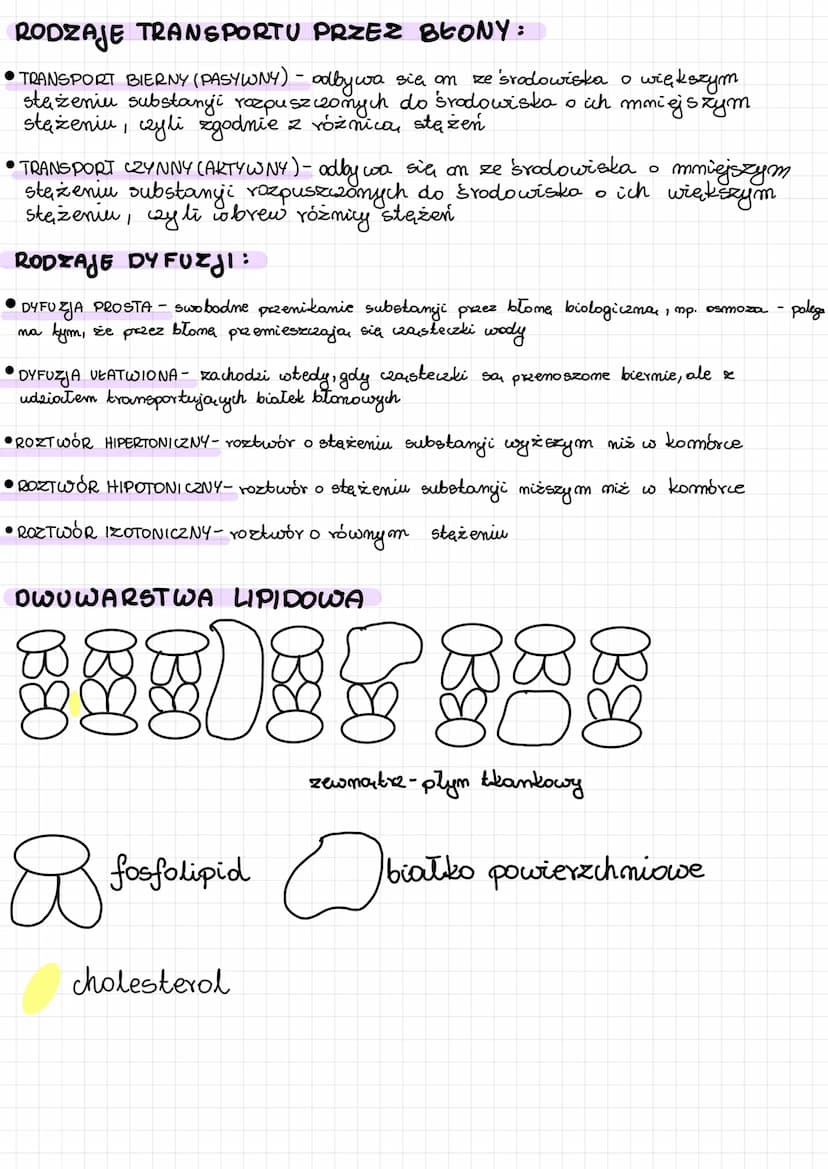 RODZAJE TRANSPORTU PRZEZ BŁONY:
• TRANSPORT BIERNY (PASYWNY) - odbywa się on ze środowiska o większym
stężeniu substancji rozpuszczonych do środowiska o ich mniejszym
stężeniu, czyli zgodnie z różnicą stężeń
• TRANSPORT CZYNNY (AKTYWNY) - odbywa się on ze środowiska o mniejszym
stężeniu substancji rozpuszczonych do środowiska o ich większym
stężeniu, czyli wbrew różnicy stężeń
RODZAJE DYFUZJI:
• DYFUZJA PROSTA - swobodne przenikanie substancji przez błonę biologiczną, np. osmoza - polega
na tym, że przez błonę przemieszczają się cząsteczki wody
• DYFUZJA UŁATWIONA - zachodzi wtedy, gdy cząsteczki są przenoszone biernie, ale z
udziałem transportujących białek błonowych
• ROZTWÓR HIPERTONICZNY - roztwór o stężeniu substancji wyższym niż w komórce
• ROZTWÓR HIPOTONICZNY - roztwór o stężeniu substancji niższym niż w komórce
• ROZTWÓR IZOTONICZNY - roztwór o równym stężeniu
DWUWARSTWA LIPIDOWA
zewnątrz - płyn tkankowy
fosfolipid
białko powierzchniowe
cholesterol